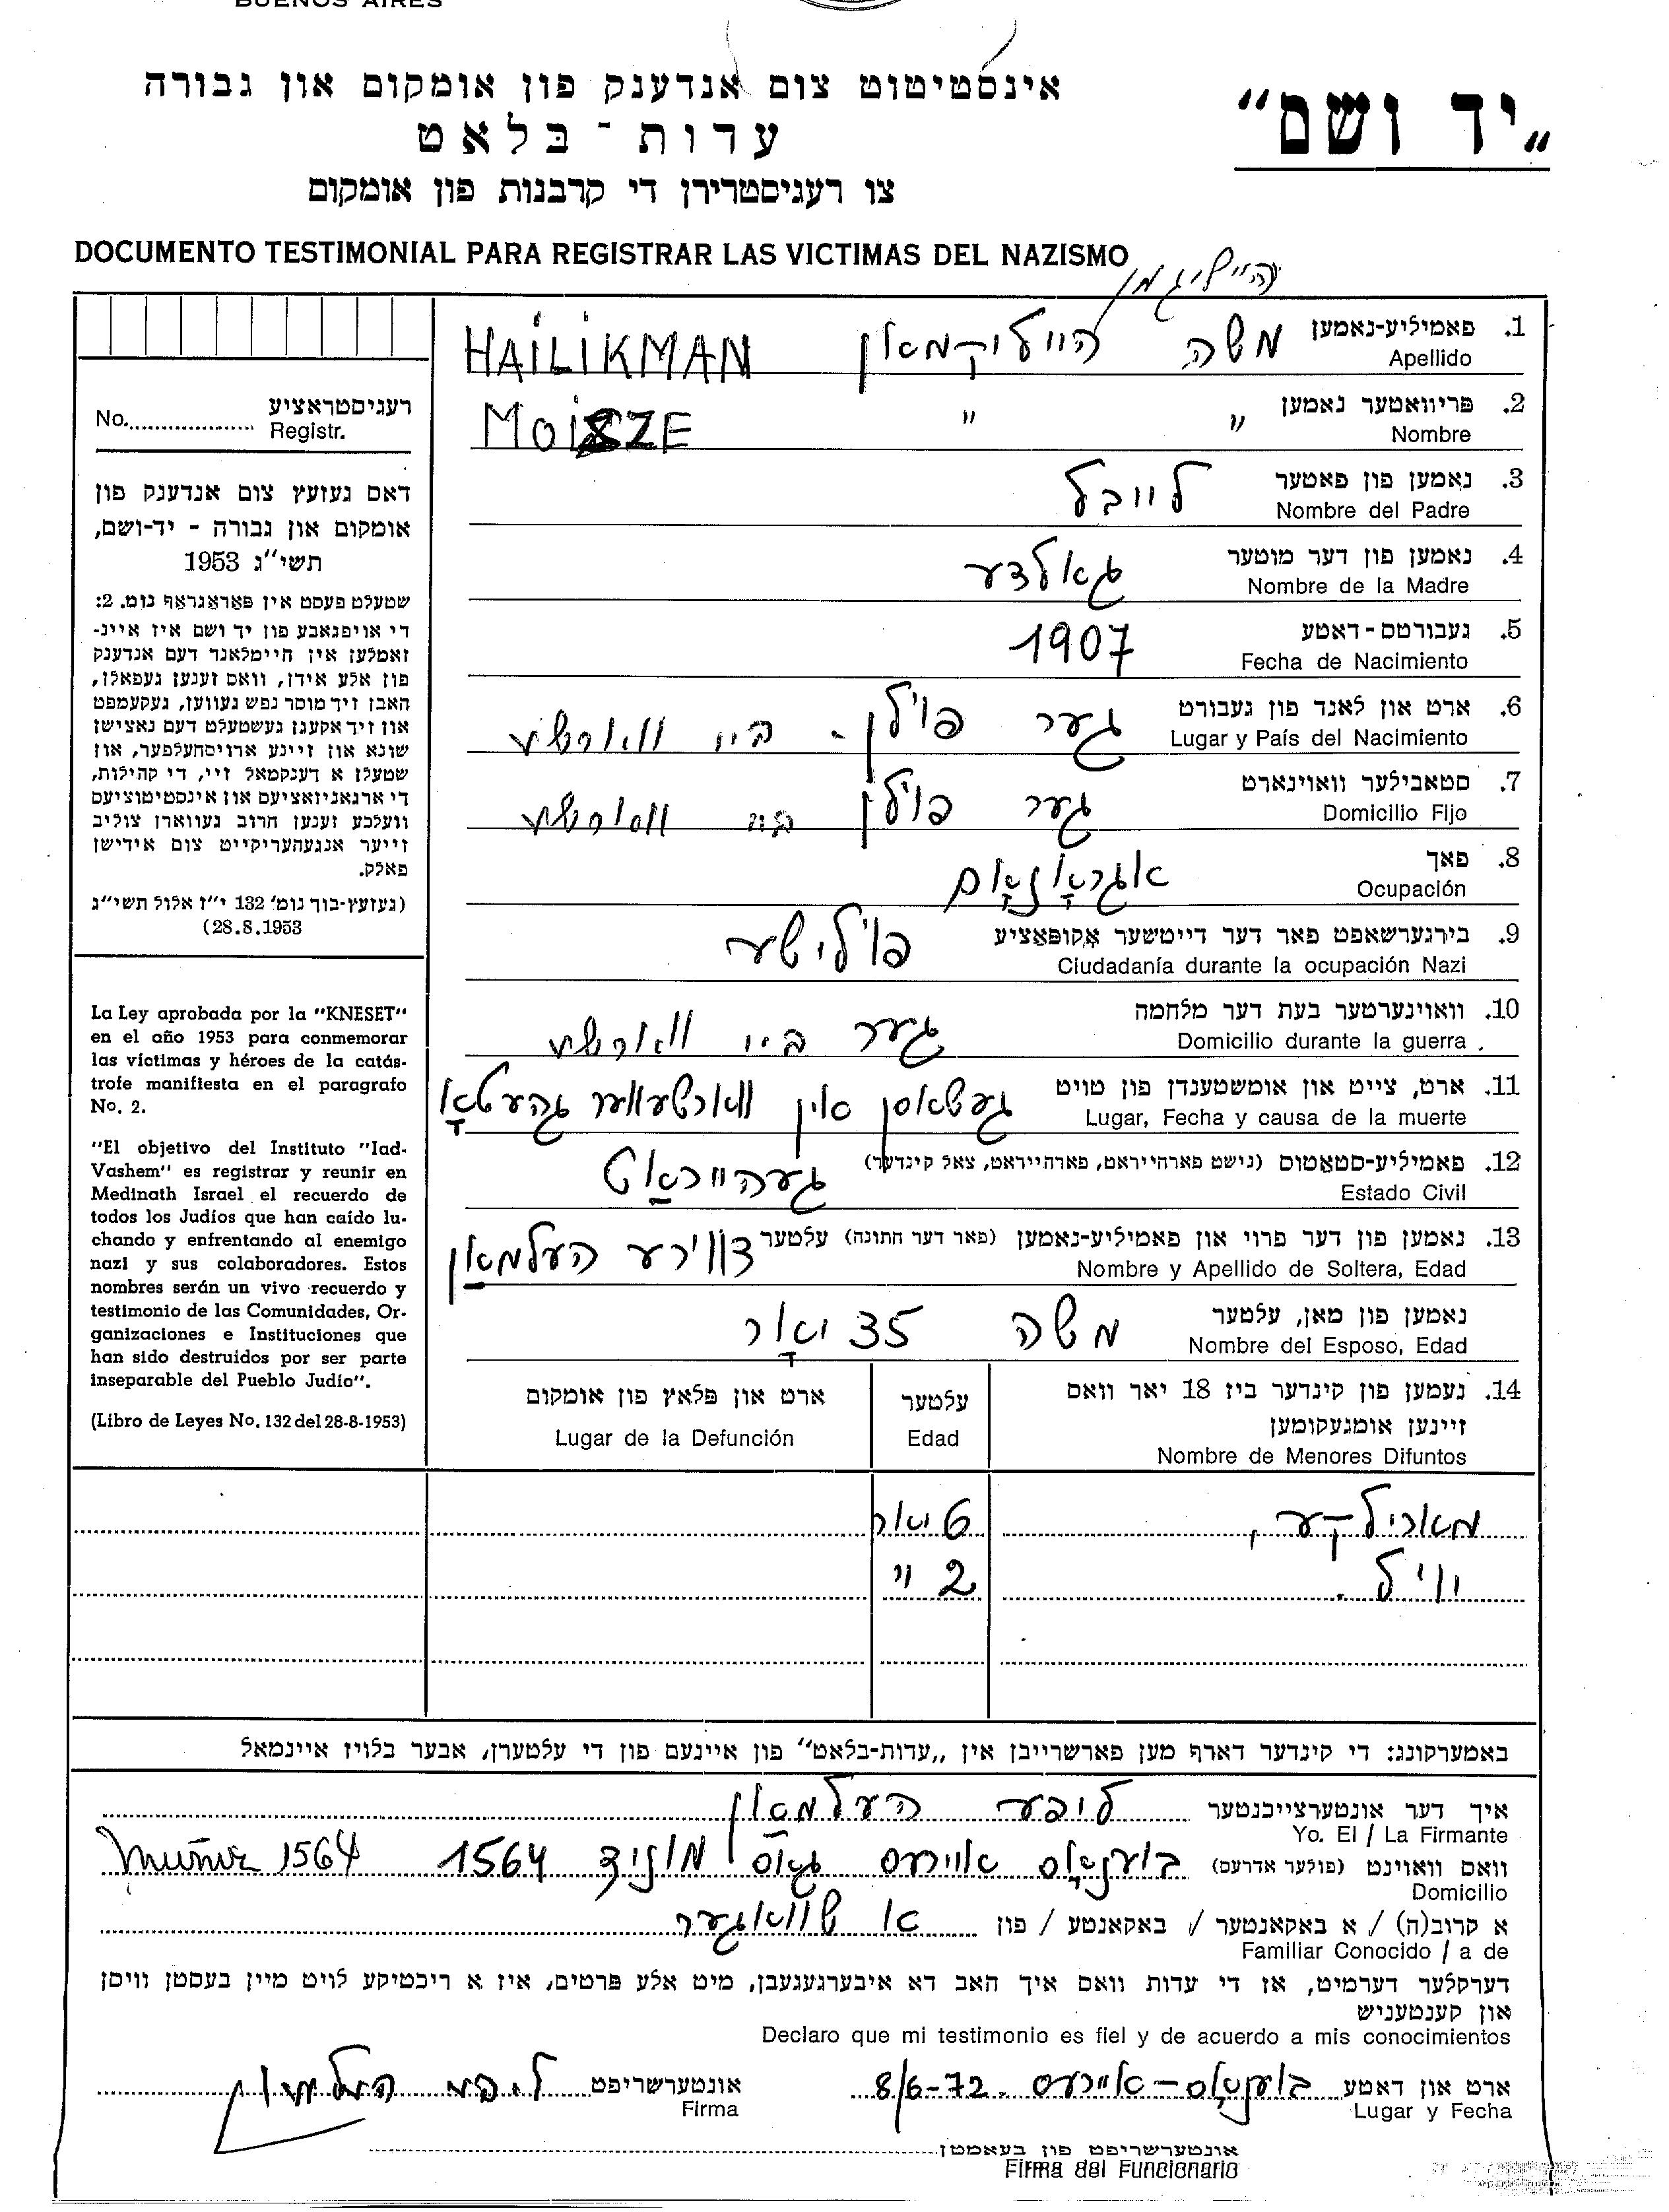 BUENOS AIRES
„יד ושם"
אינסטיטוט צום אנדענק פון אומקום און גבורה
עדות - בלאט
צו רעגיסטרירן די קרבנות פון אומקום
DOCUMENTO TESTIMONIAL PARA REGISTRAR LAS VICTIMAS DEL NAZISMO
הייליגמן
1. פאמיליע-נאמען משה הייליקמאן HAILIKMAN
Apellido
2. פריוואטער נאמען " " MOISZE
Nombre
3. נאמען פון פאטער לייבל
Nombre del Padre
4. נאמען פון דער מוטער גאלדע
Nombre de la Madre
5. געבורטס-דאטע 1907
Fecha de Nacimiento
6. ארט און לאנד פון געבורט גער פוילן - ביי ווארשע
Lugar y País del Nacimiento
7. סטאבילער וואוינארט גער פוילן ביי ווארשע
Domicilio Fijo
8. פאך אגראָנאָם
Ocupación
9. בירגערשאפט פאר דער דייטשער אקופאציע פוילישע
Ciudadanía durante la ocupación Nazi
10. וואוינערטער בעת דער מלחמה גער ביי ווארשע
Domicilio durante la guerra
11. ארט, צייט און אומשטענדן פון טויט געשאסן אין ווארשעווער געטאָ
Lugar, Fecha y causa de la muerte
12. פאמיליע-סטאטוס (נישט פארהייראט, פארהייראט, צאל קינדער) געהייראַט
Estado Civil
13. נאמען פון דער פרוי און פאמיליע-נאמען (פאר דער חתונה) עלטער דווירע העלמאַן
Nombre y Apellido de Soltera, Edad
נאמען פון מאן, עלטער משה 35 יאָר
Nombre del Esposo, Edad
14. נעמען פון קינדער ביז 18 יאר וואס
זיינען אומגעקומען
Nombre de Menores Difuntos
עלטער
Edad
ארט און פלאץ פון אומקום
Lugar de la Defunción
מארילקע, 6 יאר
יויל. 2 "
באמערקונג: די קינדער דארף מען פארשרייבן אין „עדות-בלאט" פון איינעם פון די עלטערן, אבער בלויז איינמאל
איך דער אונטערצייכנטער ליבע העלמאַן
Yo. El / La Firmante
וואס וואוינט (פולער אדרעס) בוענאָס איירעס גאַס מוניז 1564 Muñiz 1564
Domicilio
א קרוב(ה) / א באקאנטער / באקאנטע / פון א שוואגער
Familiar Conocido / a de
דערקלער דערמיט, אז די עדות וואס איך האב דא איבערגעגעבן, מיט אלע פרטים, איז א ריכטיקע לויט מיין בעסטן וויסן
און קענטעניש
Declaro que mi testimonio es fiel y de acuerdo a mis conocimientos
ארט און דאטע בוענאָס-איירעס. 8/6-72 אונטערשריפט ליבע העלמאן
Lugar y Fecha Firma
אונטערשריפט פון באאמטן
Firma del Funcionario
No. רעגיסטראציע
Registr.
דאס געזעץ צום אנדענק פון
אומקום און גבורה - יד-ושם,
תשי"ג 1953
שטעלט פעסט אין פאראגראף נומ. 2:
די אויפגאבע פון יד ושם איז איינ-
זאמלען אין היימלאנד דעם אנדענק
פון אלע אידן, וואס זענען געפאלן,
האבן זיך מוסר נפש געווען, געקעמפט
און זיך אקעגן געשטעלט דעם נאצישן
שונא און זיינע ארויסהעלפער, און
שטעלן א דענקמאל זיי, די קהילות,
די ארגאניזאציעס און אינסטיטוציעס
וועלכע זענען חרוב געווארן צוליב
זייער אנגעהעריקייט צום אידישן
פאלק.
(געזעץ-בוך נומ' 132 י"ז אלול תשי"ג
28.8.1953)
La Ley aprobada por la "KNESET"
en el año 1953 para conmemorar
las víctimas y héroes de la catás-
trofe manifiesta en el paragrafo
No. 2.
"El objetivo del Instituto "Iad-
Vashem" es registrar y reunir en
Medinath Israel el recuerdo de
todos los Judíos que han caído lu-
chando y enfrentando al enemigo
nazi y sus colaboradores. Estos
nombres serán un vivo recuerdo y
testimonio de las Comunidades, Or-
ganizaciones e Instituciones que
han sido destruidos por ser parte
inseparable del Pueblo Judío".
(Libro de Leyes No. 132 del 28-8-1953)